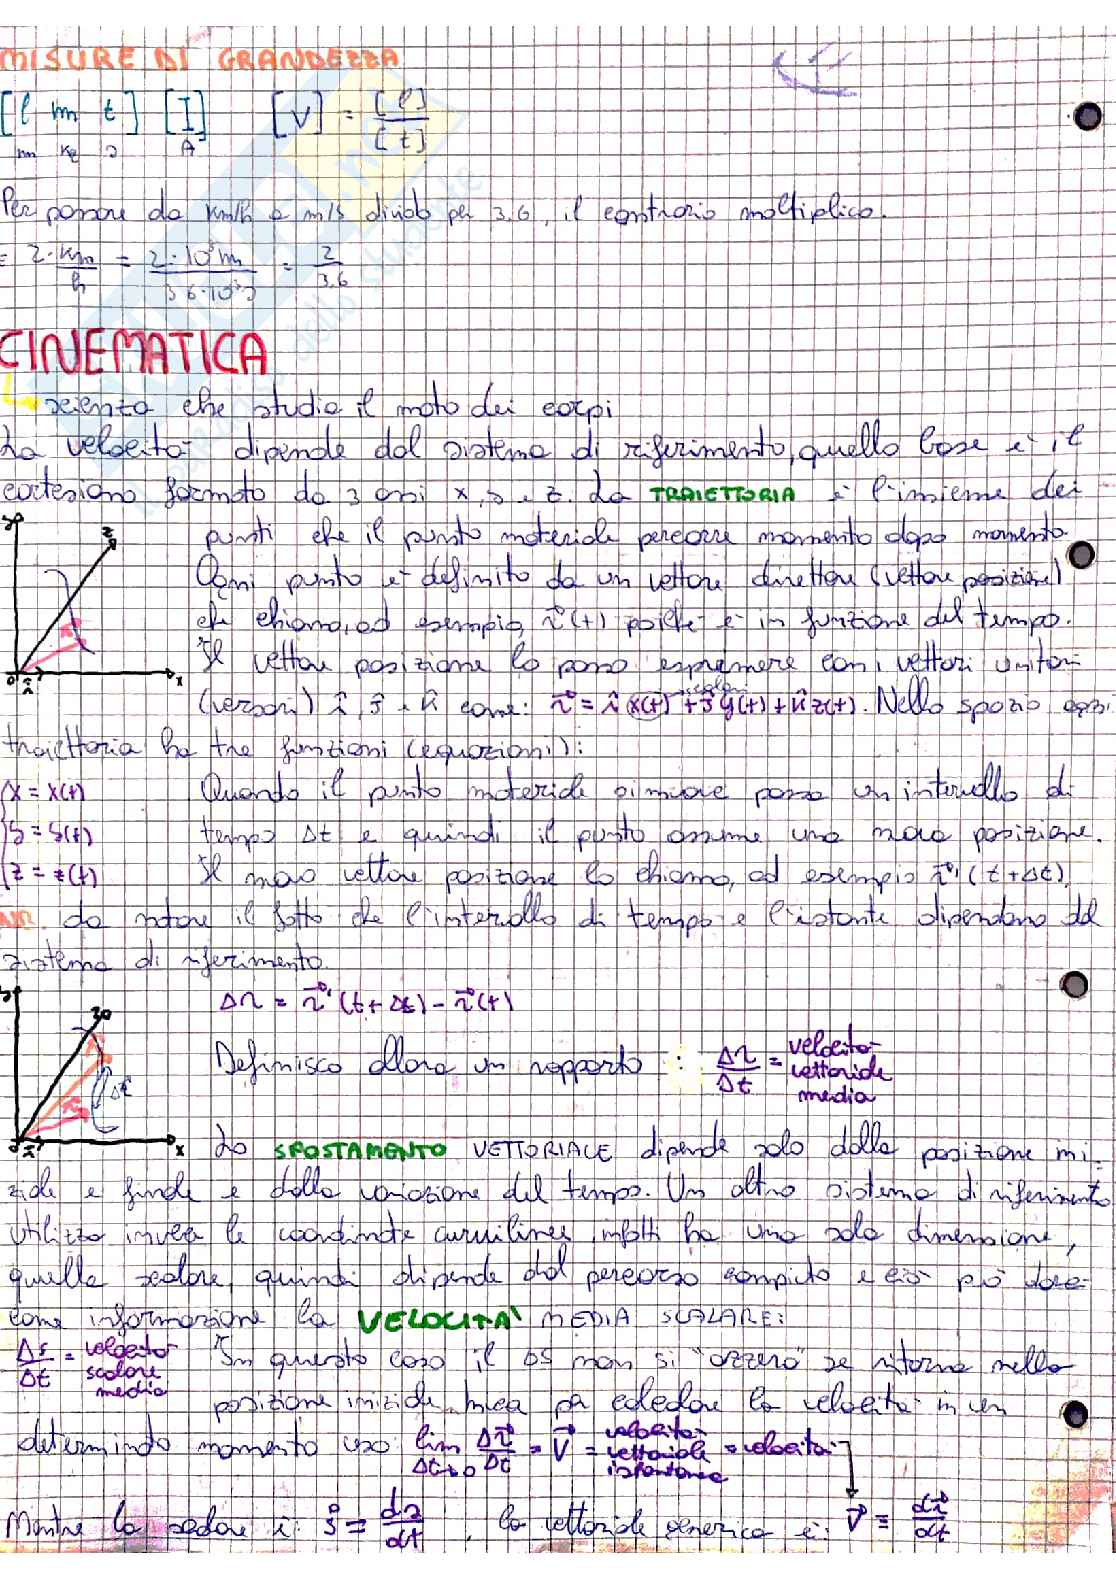 MISURE DI GRANDEZZA
[l m t] [I] [V] = [l]/[t]
m kg s A
Per passare da km/h a m/s divido per 3.6, il contrario moltiplico.
= 2·km/h = 2·10³m/3.6·10³s = 2/3.6
CINEMATICA
scienza che studia il moto dei corpi
La velocità dipende dal sistema di riferimento, quello base è il
cartesiano formato da 3 assi x, y e z. La TRAIETTORIA è l'insieme dei
punti che il punto materiale percorre momento dopo momento.
Ogni punto è definito da un vettore direttore (vettore posizione)
che chiamo, ad esempio, r⃗(t) poiché è in funzione del tempo.
Il vettore posizione lo posso esprimere con i vettori unitari
(versori) î, ĵ e k̂ come: r⃗ = î x(t) + ĵ y(t) + k̂ z(t). Nello spazio ogni
scalari
traiettoria ha tre funzioni (equazioni):
y z x 0 î r⃗
x = x(t)
y = y(t)
z = z(t)
Quando il punto materiale si muove passa un intervallo di
tempo Δt e quindi il punto assume una nuova posizione.
Il nuovo vettore posizione lo chiamo, ad esempio r⃗'(t+Δt).
da notare il fatto che l'intervallo di tempo e l'istante dipendono dal
sistema di riferimento.
Δr = r⃗'(t+Δt) - r⃗(t)
Definisco allora un rapporto: Δr/Δt = velocità vettoriale media
Δt x
Lo SPOSTAMENTO VETTORIALE dipende solo dalla posizione ini-
ziale e finale e dalla variazione del tempo. Un altro sistema di riferimento
utilizza invece le coordinate curvilinee, infatti ha una sola dimensione,
quella scalare, quindi dipende dal percorso compiuto e ciò può dare
come informazione la VELOCITÀ MEDIA SCALARE:
Δs/Δt = velocità scalare media
In questo caso il Δs non si "azzera" se ritorna nella
posizione iniziale. Invece per calcolare la velocità in un
determinato momento uso lim Δt→0 Δr⃗/Δt = V⃗ = velocità vettoriale istantanea = velocità
Mentre la scalare è: ṡ = ds/dt, la vettoriale generica è: V⃗ = dr⃗/dt